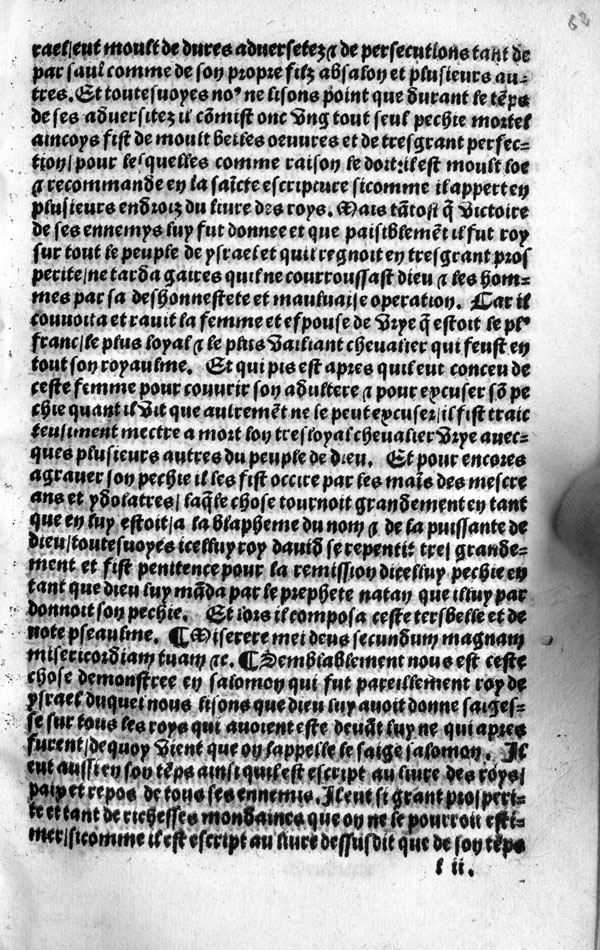 62
rael/eut moult de dures adversetez ⁊ de persecutions tant de
par saul comme de son propre filz absalon et plusieurs au-
tres. Et toutesuoyes no⁹ ne lisons point que durant le tẽps
de ses adversitez il cõmist onc vng tout seul pechie mortel
aincoys fist de moult belles oeuvres et de tresgrant perfec-
tion/ pour lesquelles comme raison le doit: il est moult loe
⁊ recommande en la saĩcte escripture sicomme il appert en
plusieurs endroiz du livre des roys. Mais tãtost q̃ victoire
de ses ennemys luy fut donnee et que paisiblemẽt il fut roy
sur tout le peuple de ysrael et quil regnoit en tresgrant pros
perite/ ne tarda gaires quil ne courroussast dieu ⁊ les hom-
mes par sa deshonnestete et mauluaise operation. Car il
couvoita et ravit la femme et espouse de vrye q̃ estoit le pl⁹
franc/ le plus loyal ⁊ le plus vaillant chevalier qui feust en
tout son royaulme. Et qui pis est apres quil eut conceu de
ceste femme pour couurir son adultere ⁊ pour excuser sõ pe
chie quant il vit que autremẽt ne le peut excuser/ il fist traic
teusement mectre a mort son tresloyal chevalier vrye avec-
ques plusieurs autres du peuple de dieu. Et pour encores
agrauer son pechie il les fist occire par les maĩs des mescre
ans et ydolatres/ laq̃lle chose tournoit grandement en tant
que en luy estoit/ a la blapheme du nom ⁊ de la puissante de
dieu/ toutesuoyes icelluy roy david se repentit tres grande-
ment et fist penitence pour la remission dicelluy pechie en
tant que dieu luy mãda par le prophete natan que il luy par
donnoit son pechie. Et lors il composa ceste tersbelle et de
note pseaulme. ¶Miserere mei deus secundum magnam
misericordiam tuam ⁊c. ¶Semblablement nous est ceste
chose demonstree en salomon qui fut pareillement roy de
ysrael duquel nous lisons que dieu luy avoit donne saiges-
se sur tous les roys qui avoient este devãt luy ne qui apres
furent/ dequoy vient que on lappelle le saige salomon. Il
eut aussi en son tẽps ainsi quil est escript au livre des roys/
paix et repos de tous ses ennemis. Il eut si grant prosperi-
te et tant de richesses mondaines que on ne le pourroit esti-
mer/ sicomme il est escript au livre dessusdit que de son tẽps
l ii.